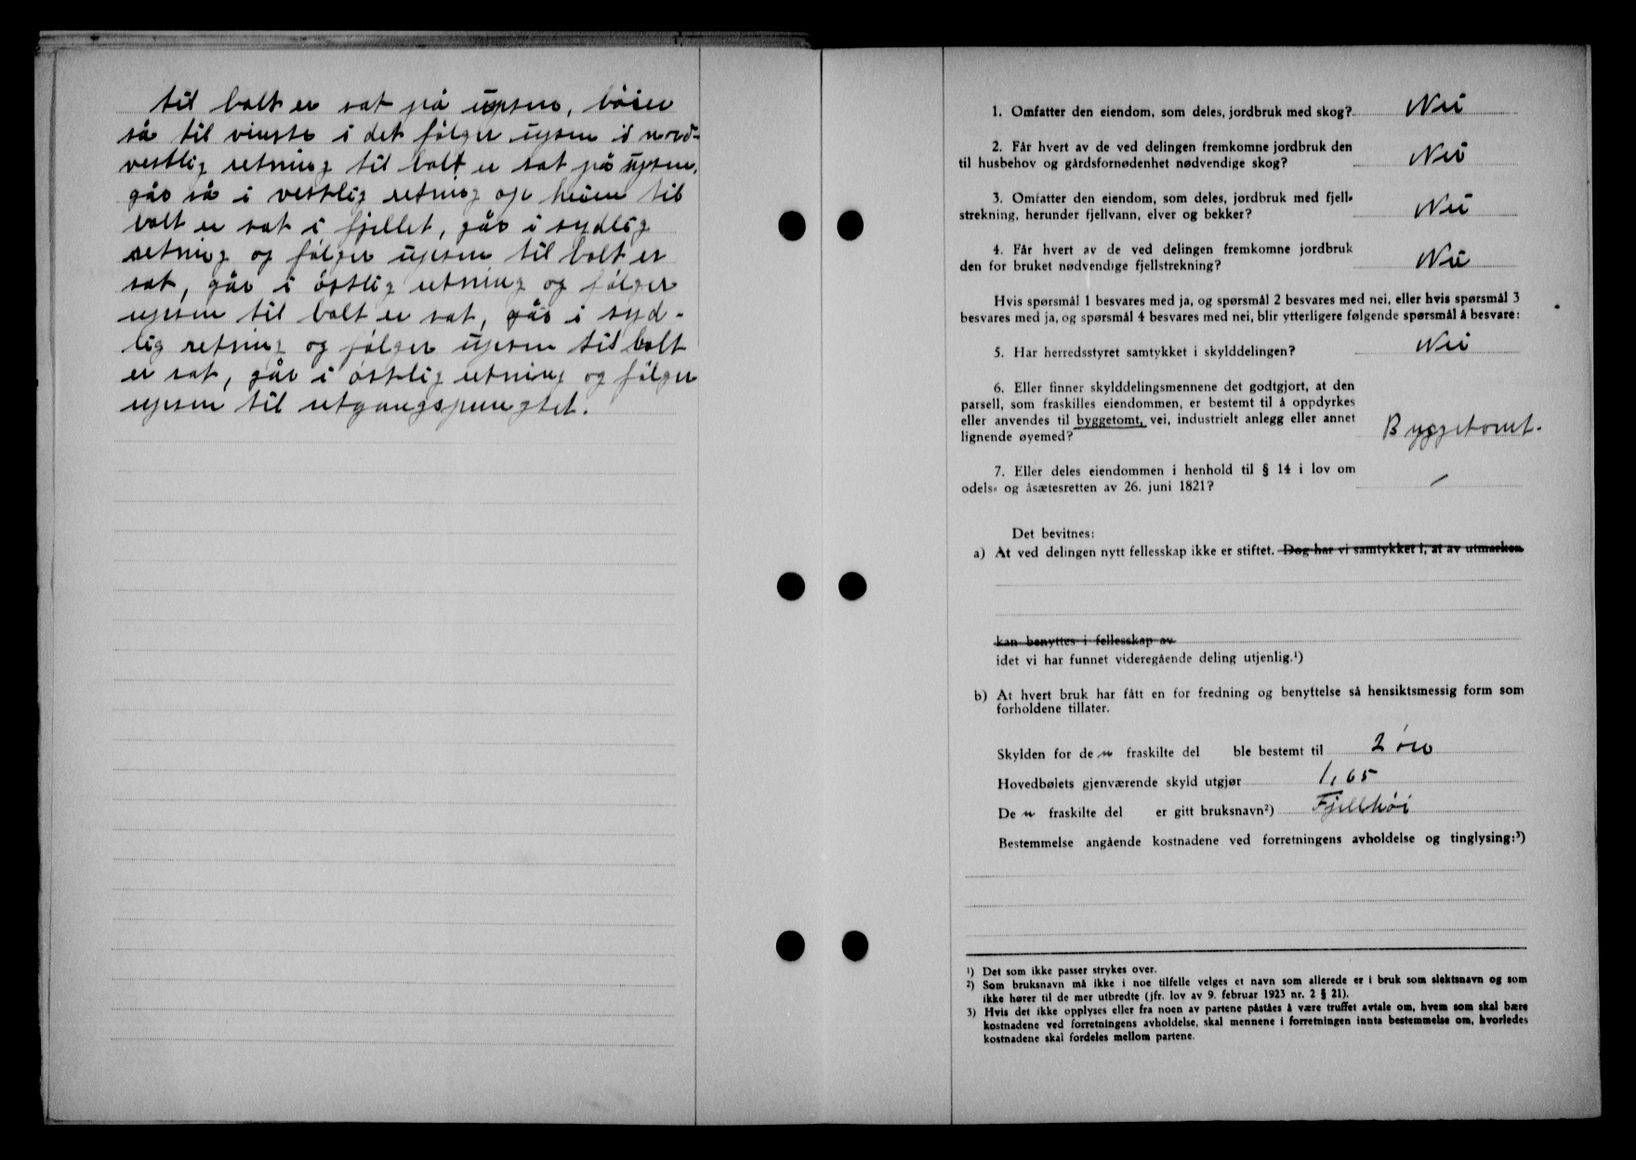 til bolt er sat på upsen, böier
så til vinste i det fölger upsen i nord-
vestlig retning til bolt er sat på upsen,
gås så i vestlig retning op heien til
bolt er sat i fjellet, gås i sydlig
retning og fölger upsen til bolt er
sat, går i östlig retning og fölger
upsen til bolt er sat, gås i syd-
lig retning og fölger upsen til bolt
er sat, går i östlig retning og fölger
upsen til utgangspungtet.
1. Omfatter den eiendom, som deles, jordbruk med skog? Nei
2. Får hvert av de ved delingen fremkomne jordbruk den
til husbehov og gårdsfornødenhet nødvendige skog? Nei
3. Omfatter den eiendom, som deles, jordbruk med fjell-
strekning, herunder fjellvann, elver og bekker? Nei
4. Får hvert av de ved delingen fremkomne jordbruk
den for bruket nødvendige fjellstrekning? Nei
Hvis spørsmål 1 besvares med ja, og spørsmål 2 besvares med nei, eller hvis spørsmål 3
besvares med ja, og spørsmål 4 besvares med nei, blir ytterligere følgende spørsmål å besvare:
5. Har herredsstyret samtykket i skylddelingen? Nei
6. Eller finner skylddelingsmennene det godtgjort, at den
parsell, som fraskilles eiendommen, er bestemt til å oppdyrkes
eller anvendes til byggetomt, vei, industrielt anlegg eller annet
lignende øyemed? Byggetomt.
7. Eller deles eiendommen i henhold til § 14 i lov om
odels- og åsætesretten av 26. juni 1821? /
Det bevitnes:
a) At ved delingen nytt fellesskap ikke er stiftet. Dog har vi samtykket i, at av utmarken
kan benyttes i fellesskap av
idet vi har funnet videregående deling utjenlig.¹)
b) At hvert bruk har fått en for fredning og benyttelse så hensiktsmessig form som
forholdene tillater.
Skylden for den fraskilte del ble bestemt til 2 øre
Hovedbølets gjenværende skyld utgjør 1,65
Den fraskilte del er gitt bruksnavn²) Fjellhöi
Bestemmelse angående kostnadene ved forretningens avholdelse og tinglysing:³)
¹) Det som ikke passer strykes over.
²) Som bruksnavn må ikke i noe tilfelle velges et navn som allerede er i bruk som slektsnavn og som
ikke hører til de mer utbredte (jfr. lov av 9. februar 1923 nr. 2 § 21).
3) Hvis det ikke opplyses eller fra noen av partene påståes å være truffet avtale om, hvem som skal bære
kostnadene ved forretningens avholdelse, skal mennene i forretningen innta bestemmelse om, hvorledes
kostnadene skal fordeles mellom partene.